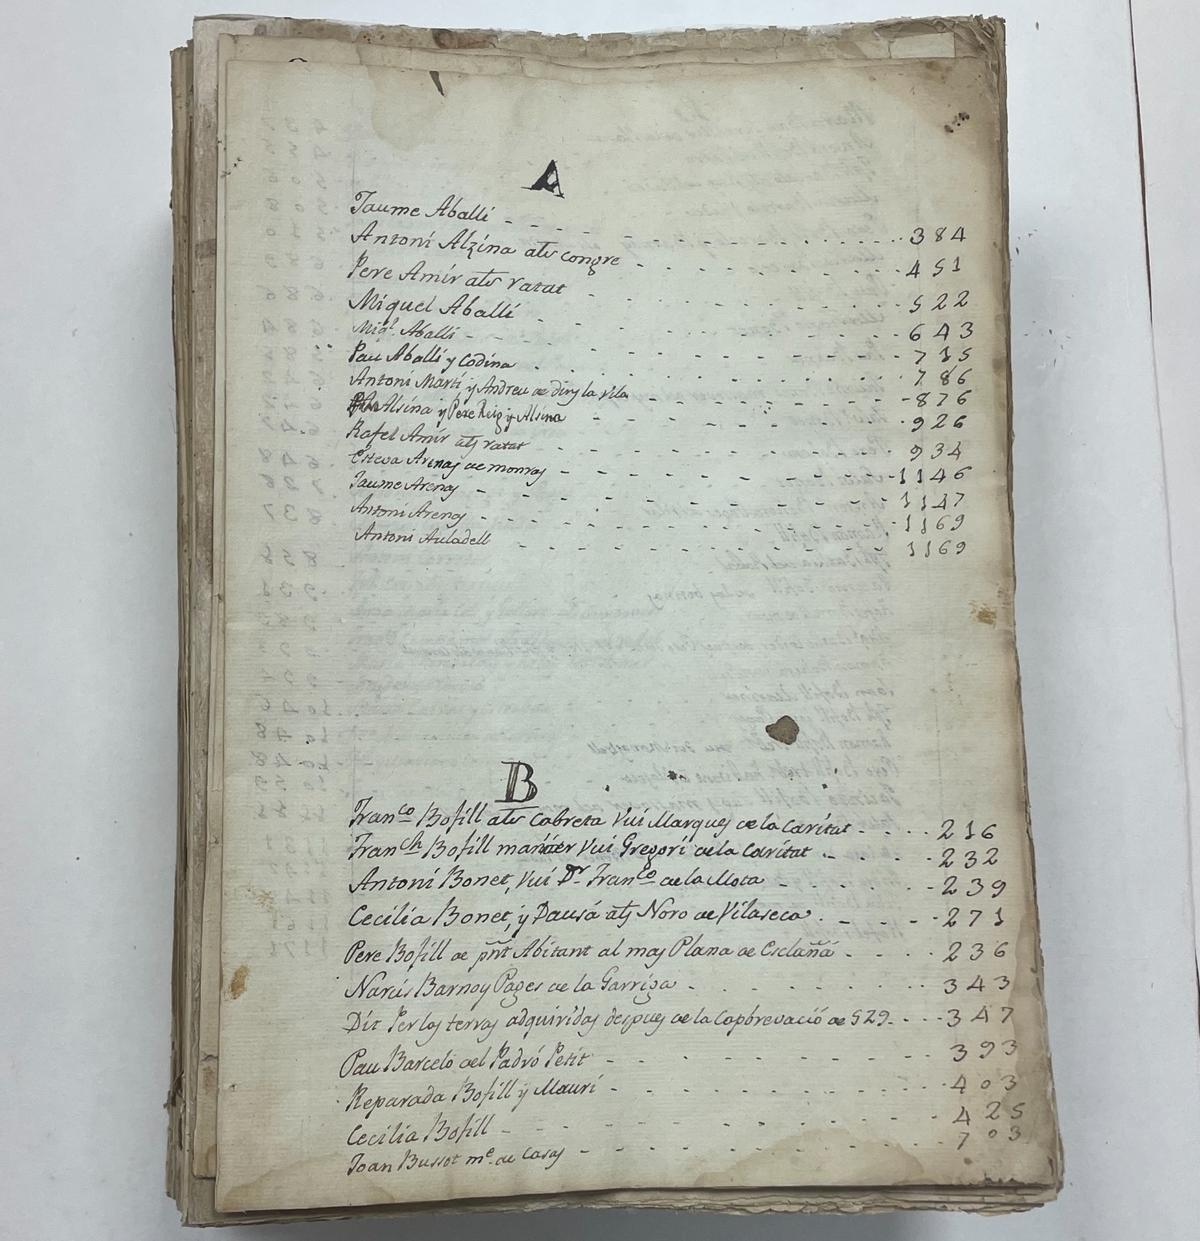 A
Jaume Aballí - - - - - - - 384
Antoni Alzina als congre - - - - - 451
Pere Amir als ratat - - - - - - 522
Miquel Aballí - - - - - - 643
Miql. Aballi - - - - - - 715
Pau Aballi y Codina - - - - - - 786
Antoni Martí y Andreu de diny la vila - - - - 876
Alsina y Pere Reig y Alsina - - - - - 926
Rafel Amir als ratat - - - - - - 934
Esteva Arenas de monras - - - - - - 1146
Jaume Arenas - - - - - - 1147
Antoni Arenas - - - - - - 1169
Antoni Auladell - - - - - - 1169
B
Franco Bofill als Cabreta Vui Marques de la Caritat - - - - 216
Franch Bofill mariner Vui Gregori de la Caritat - - - 232
Antoni Bonet, Vui Dr. Franco de la Mota - - - - 239
Cecilia Bonet, y Dausá als Noro de Vilaseca - - - - 271
Pere Bofill de pñt Abitant al mas Plana de Esclañá - - - 236
Narcis Barnoy Pages de la Garriga - - - - - 343
Dit Per las terras adquiridas despues de la Capbrevació de 529 - - - 347
Pau Barceló del Padró Petit - - - - - - 393
Reparada Bofill y Maurí - - - - - - 403
Cecilia Bofill - - - - - - 425
Joan Bussot me. de Casas - - - - - - 703